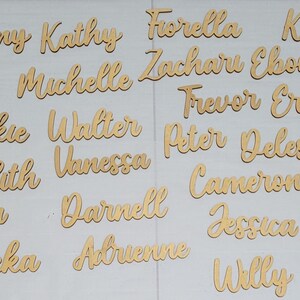 ny Kathy Fiorella K
Michelle Zachary Ebo
Trevor Er
kie Walter Peter Deles
Vanessa
ith Cameron
Darnell Jessica
ka Adrienne
Willy